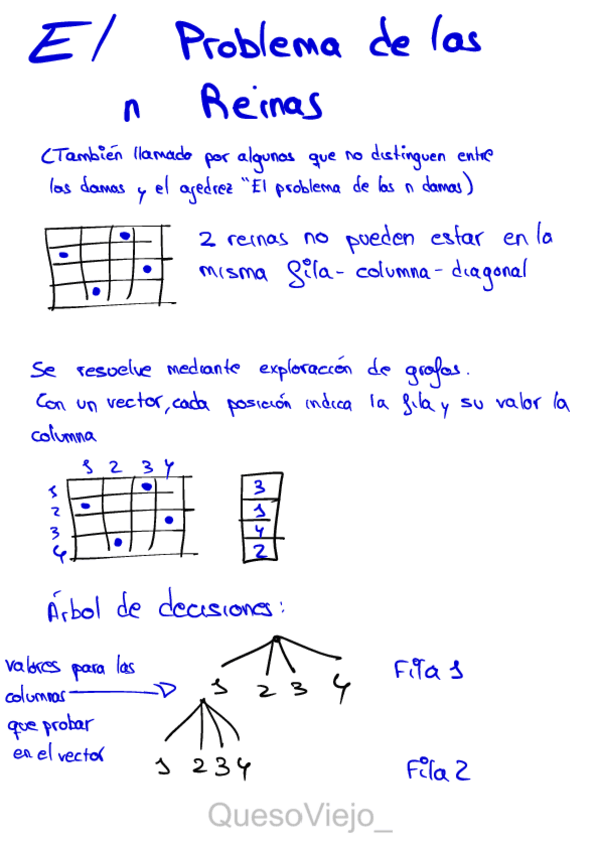 El Problema de las
n Reinas
(También llamado por algunos que no distinguen entre
las damas y el ajedrez "El problema de las n damas)
2 reinas no pueden estar en la
misma fila - columna - diagonal
Se resuelve mediante exploración de grafos.
Con un vector, cada posición indica la fila y su valor la
columna
1 2 3 4
1
2
3
4
3
1
4
2
Árbol de decisiones:
valores para las
columnas
que probar
en el vector
1 2 3 4
Fila 1
1 2 3 4
Fila 2
QuesoViejo_